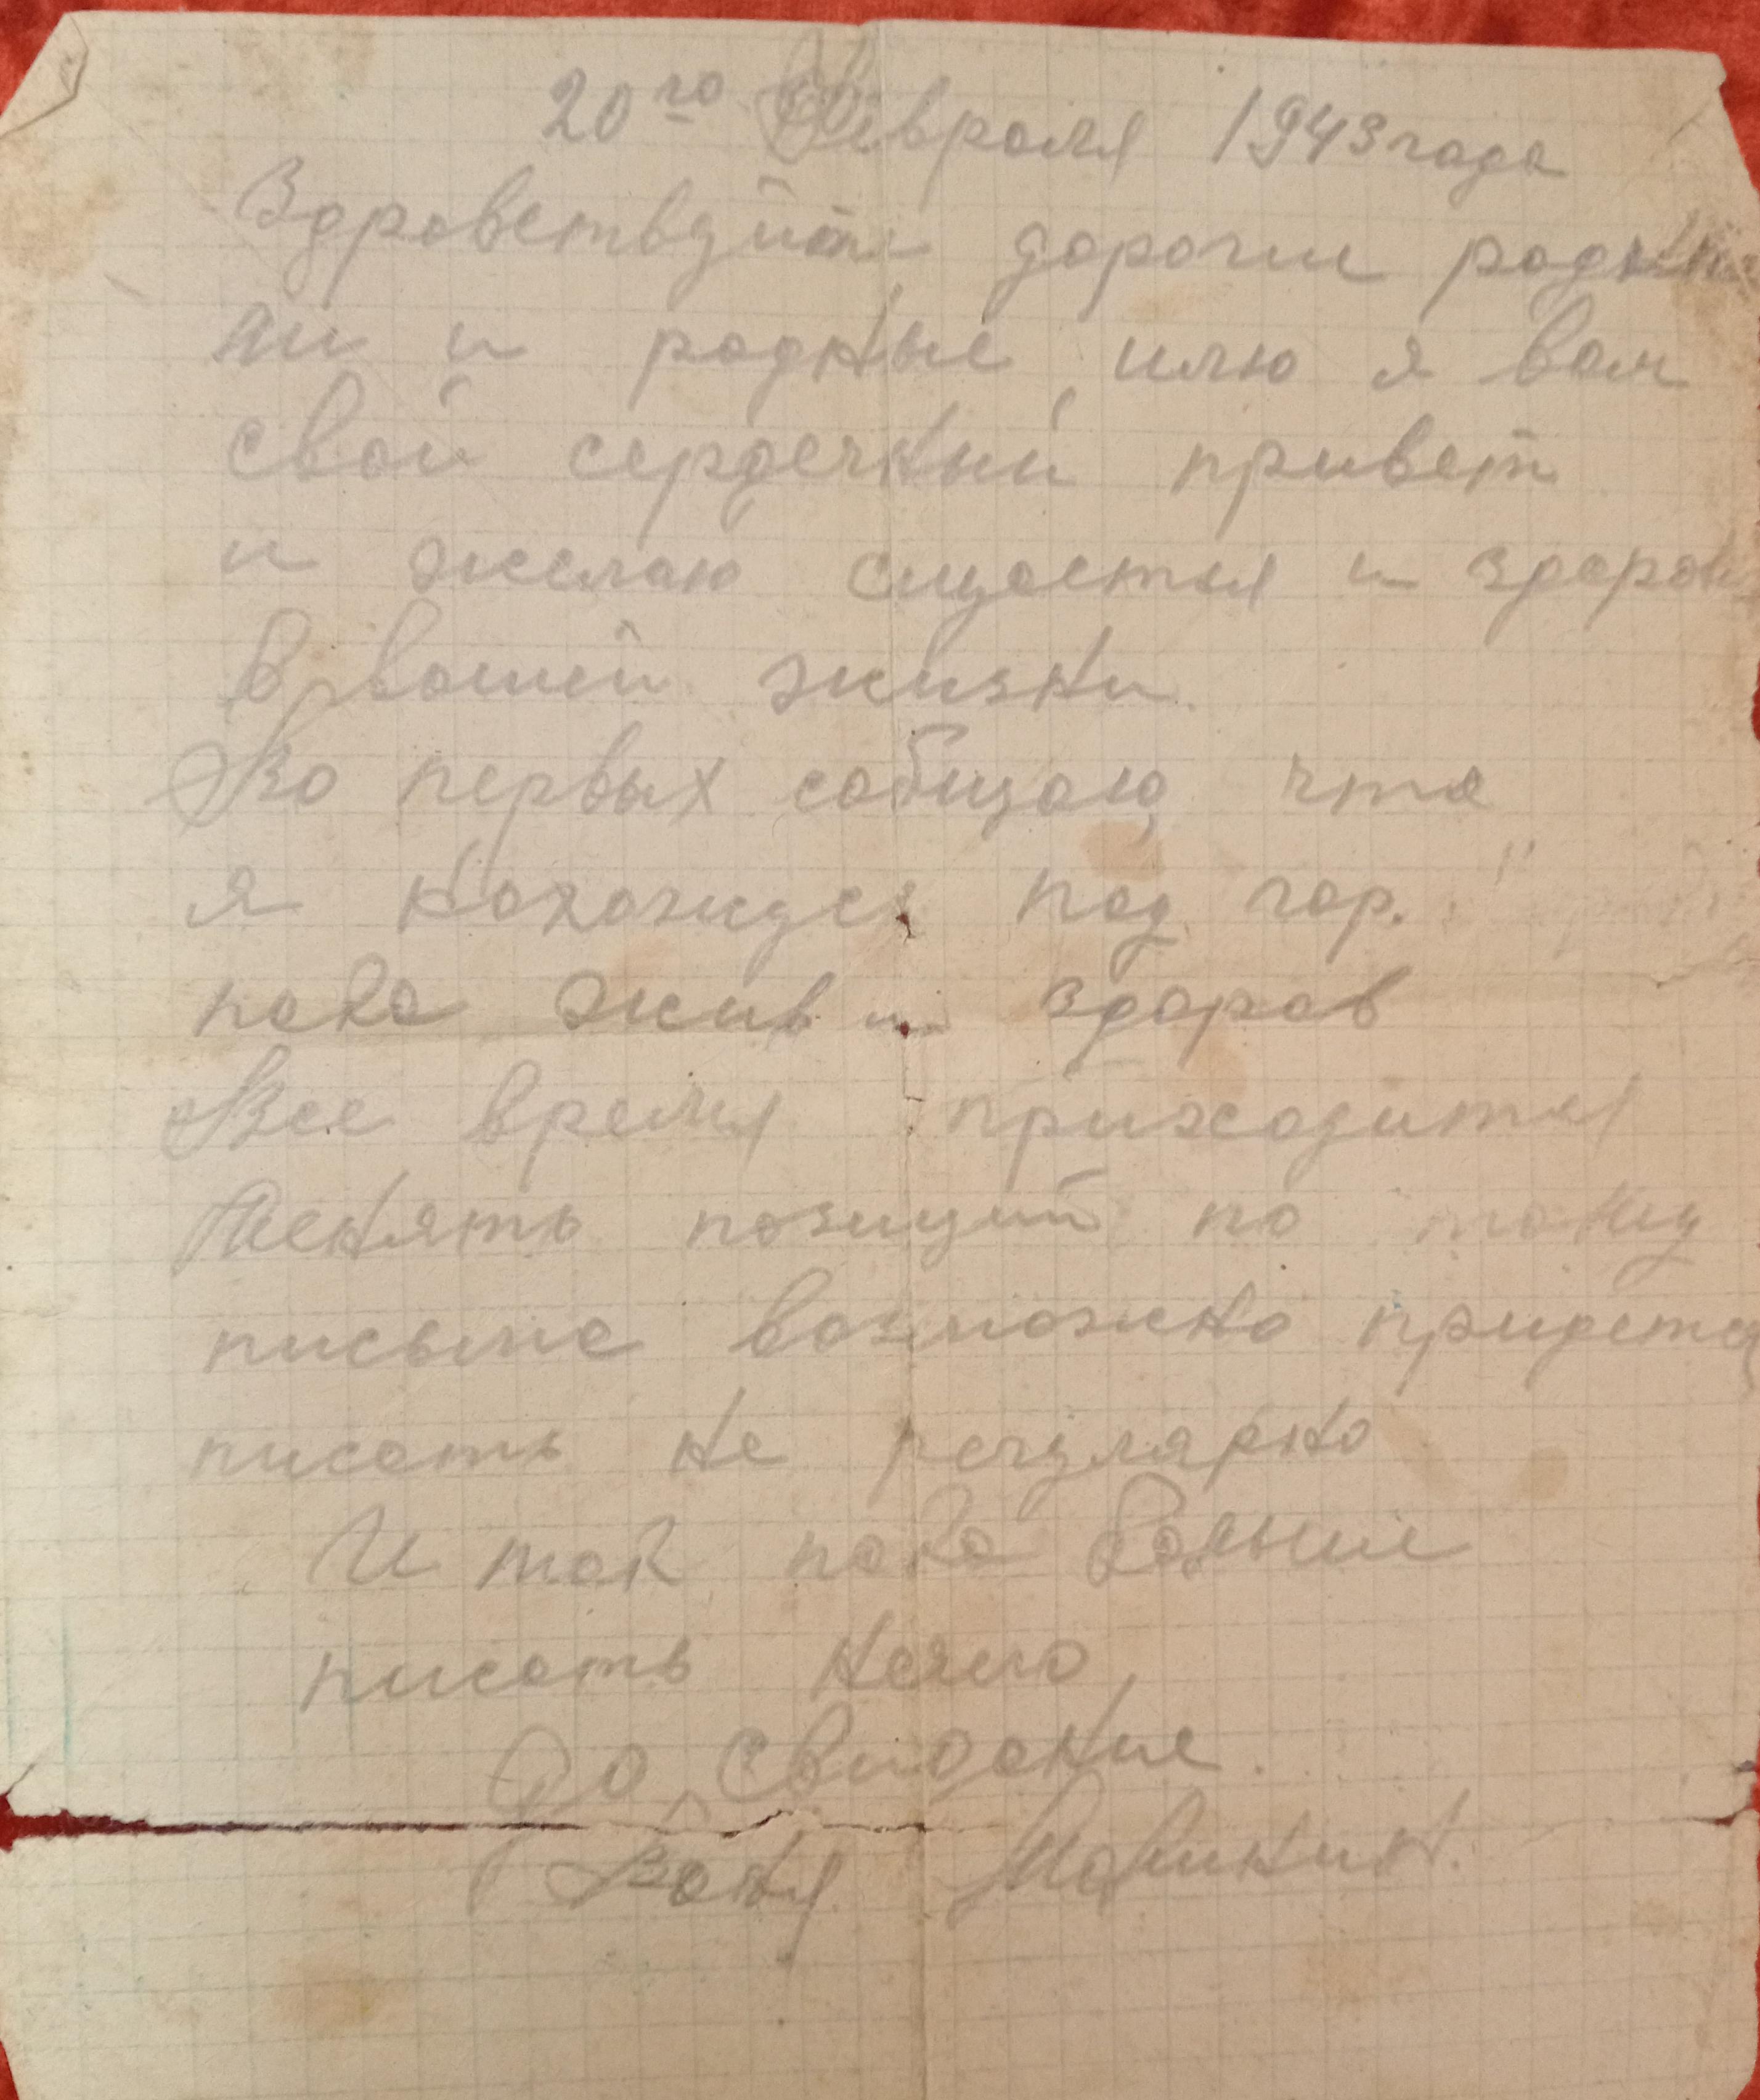 20го Февраля 1943 года
Здравствуйте дорогие
и родные, шлю я вам
свой сердечный привет
и желаю сщастья и
в вашей жизни.
Во первых собщаю что
я нахожусь под гор.
пока жив и здоров
Все время приходится
менять позиций по тому
письма возможно придется
писать не регулярно
И так пока больше
писать нечего,
До свидание.
Ваня